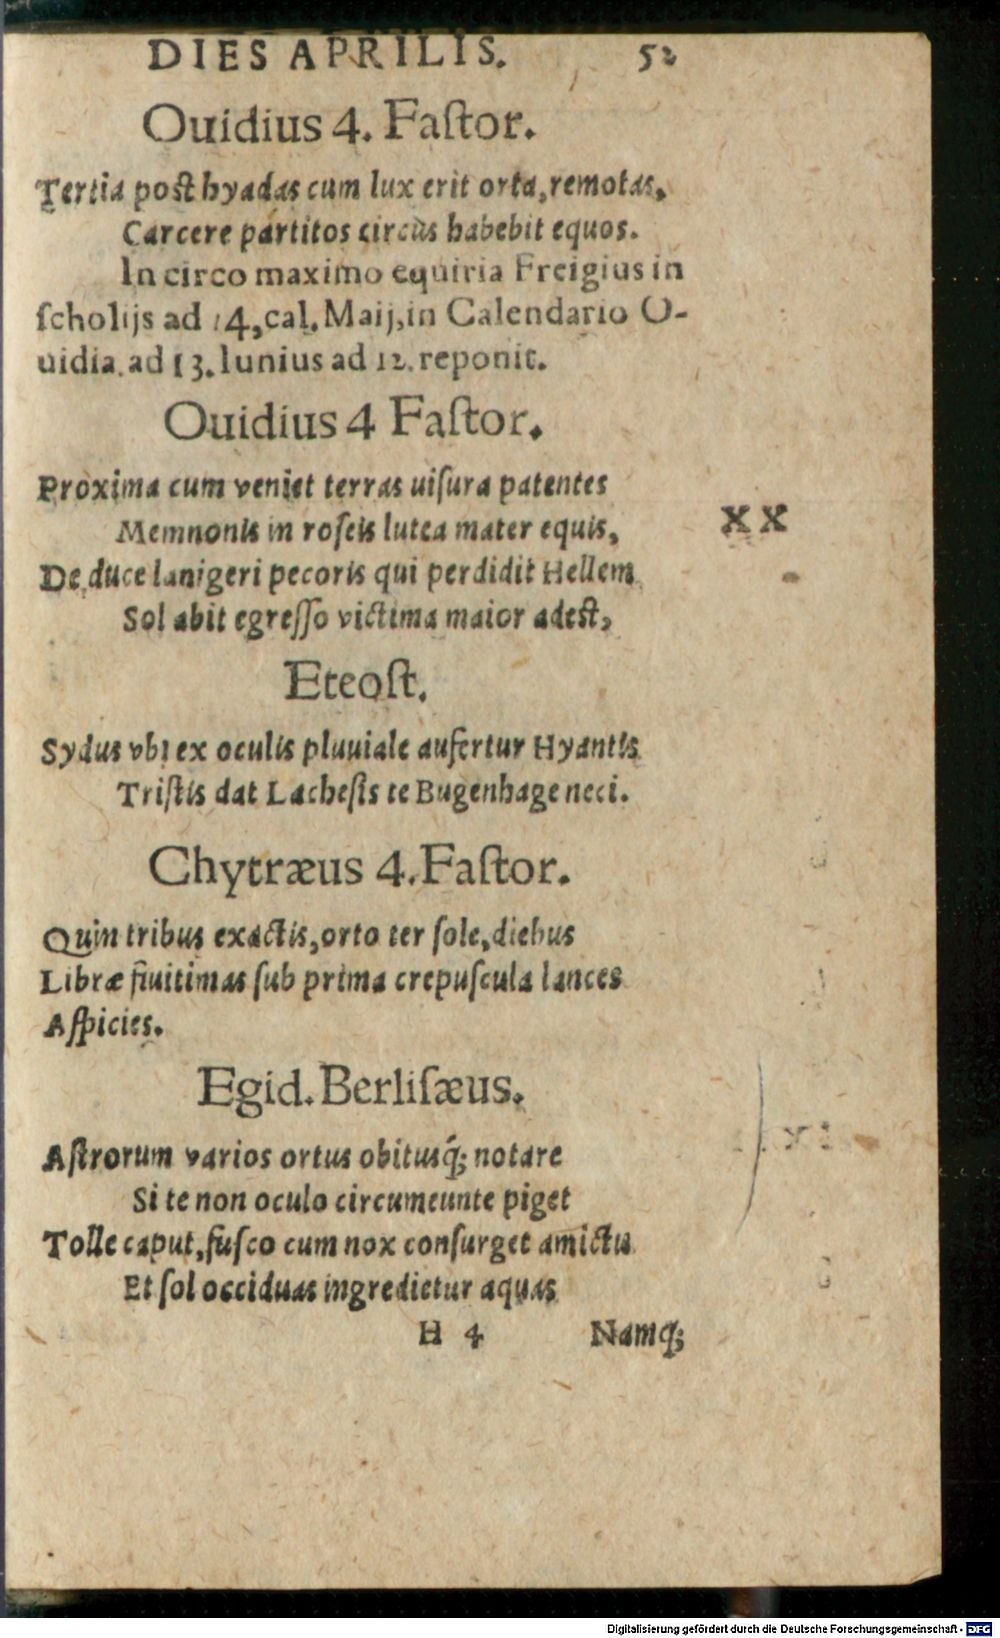 DIES APRILIS. 52
Ouidius 4. Faſtor.
Tertia poſt hyadas cum lux erit orta, remotas,
Carcere partitos circus habebit equos.
In circo maximo equiria Freigius in
ſcholijs ad 14, cal. Maij, in Calendario O-
uidia. ad 13. Iunius ad 12. reponit.
Ouidius 4 Faſtor.
Proxima cum veniet terras uiſura patentes
XX
Memnonis in roſeis lutea mater equis,
De duce lanigeri pecoris qui perdidit Hellem
Sol abit egreſſo victima maior adeſt,
Eteoſt.
Sydus vbi ex oculis pluuiale aufertur Hyantis
Triſtis dat Lacheſis te Bugenhage neci.
Chytræus 4. Faſtor.
Quin tribus exactis, orto ter ſole, diebus
Libræ finitimas ſub prima crepuſcula lances
Aſpicies.
Egid. Berliſæus.
Aſtrorum varios ortus obitusq́; notare
Si te non oculo circumeunte piget
Tolle caput, fuſco cum nox conſurget amictu
Et ſol occiduas ingredietur aquas
H 4 Namq́;
Digitalisierung gefördert durch die Deutsche Forschungsgemeinschaft - DFG